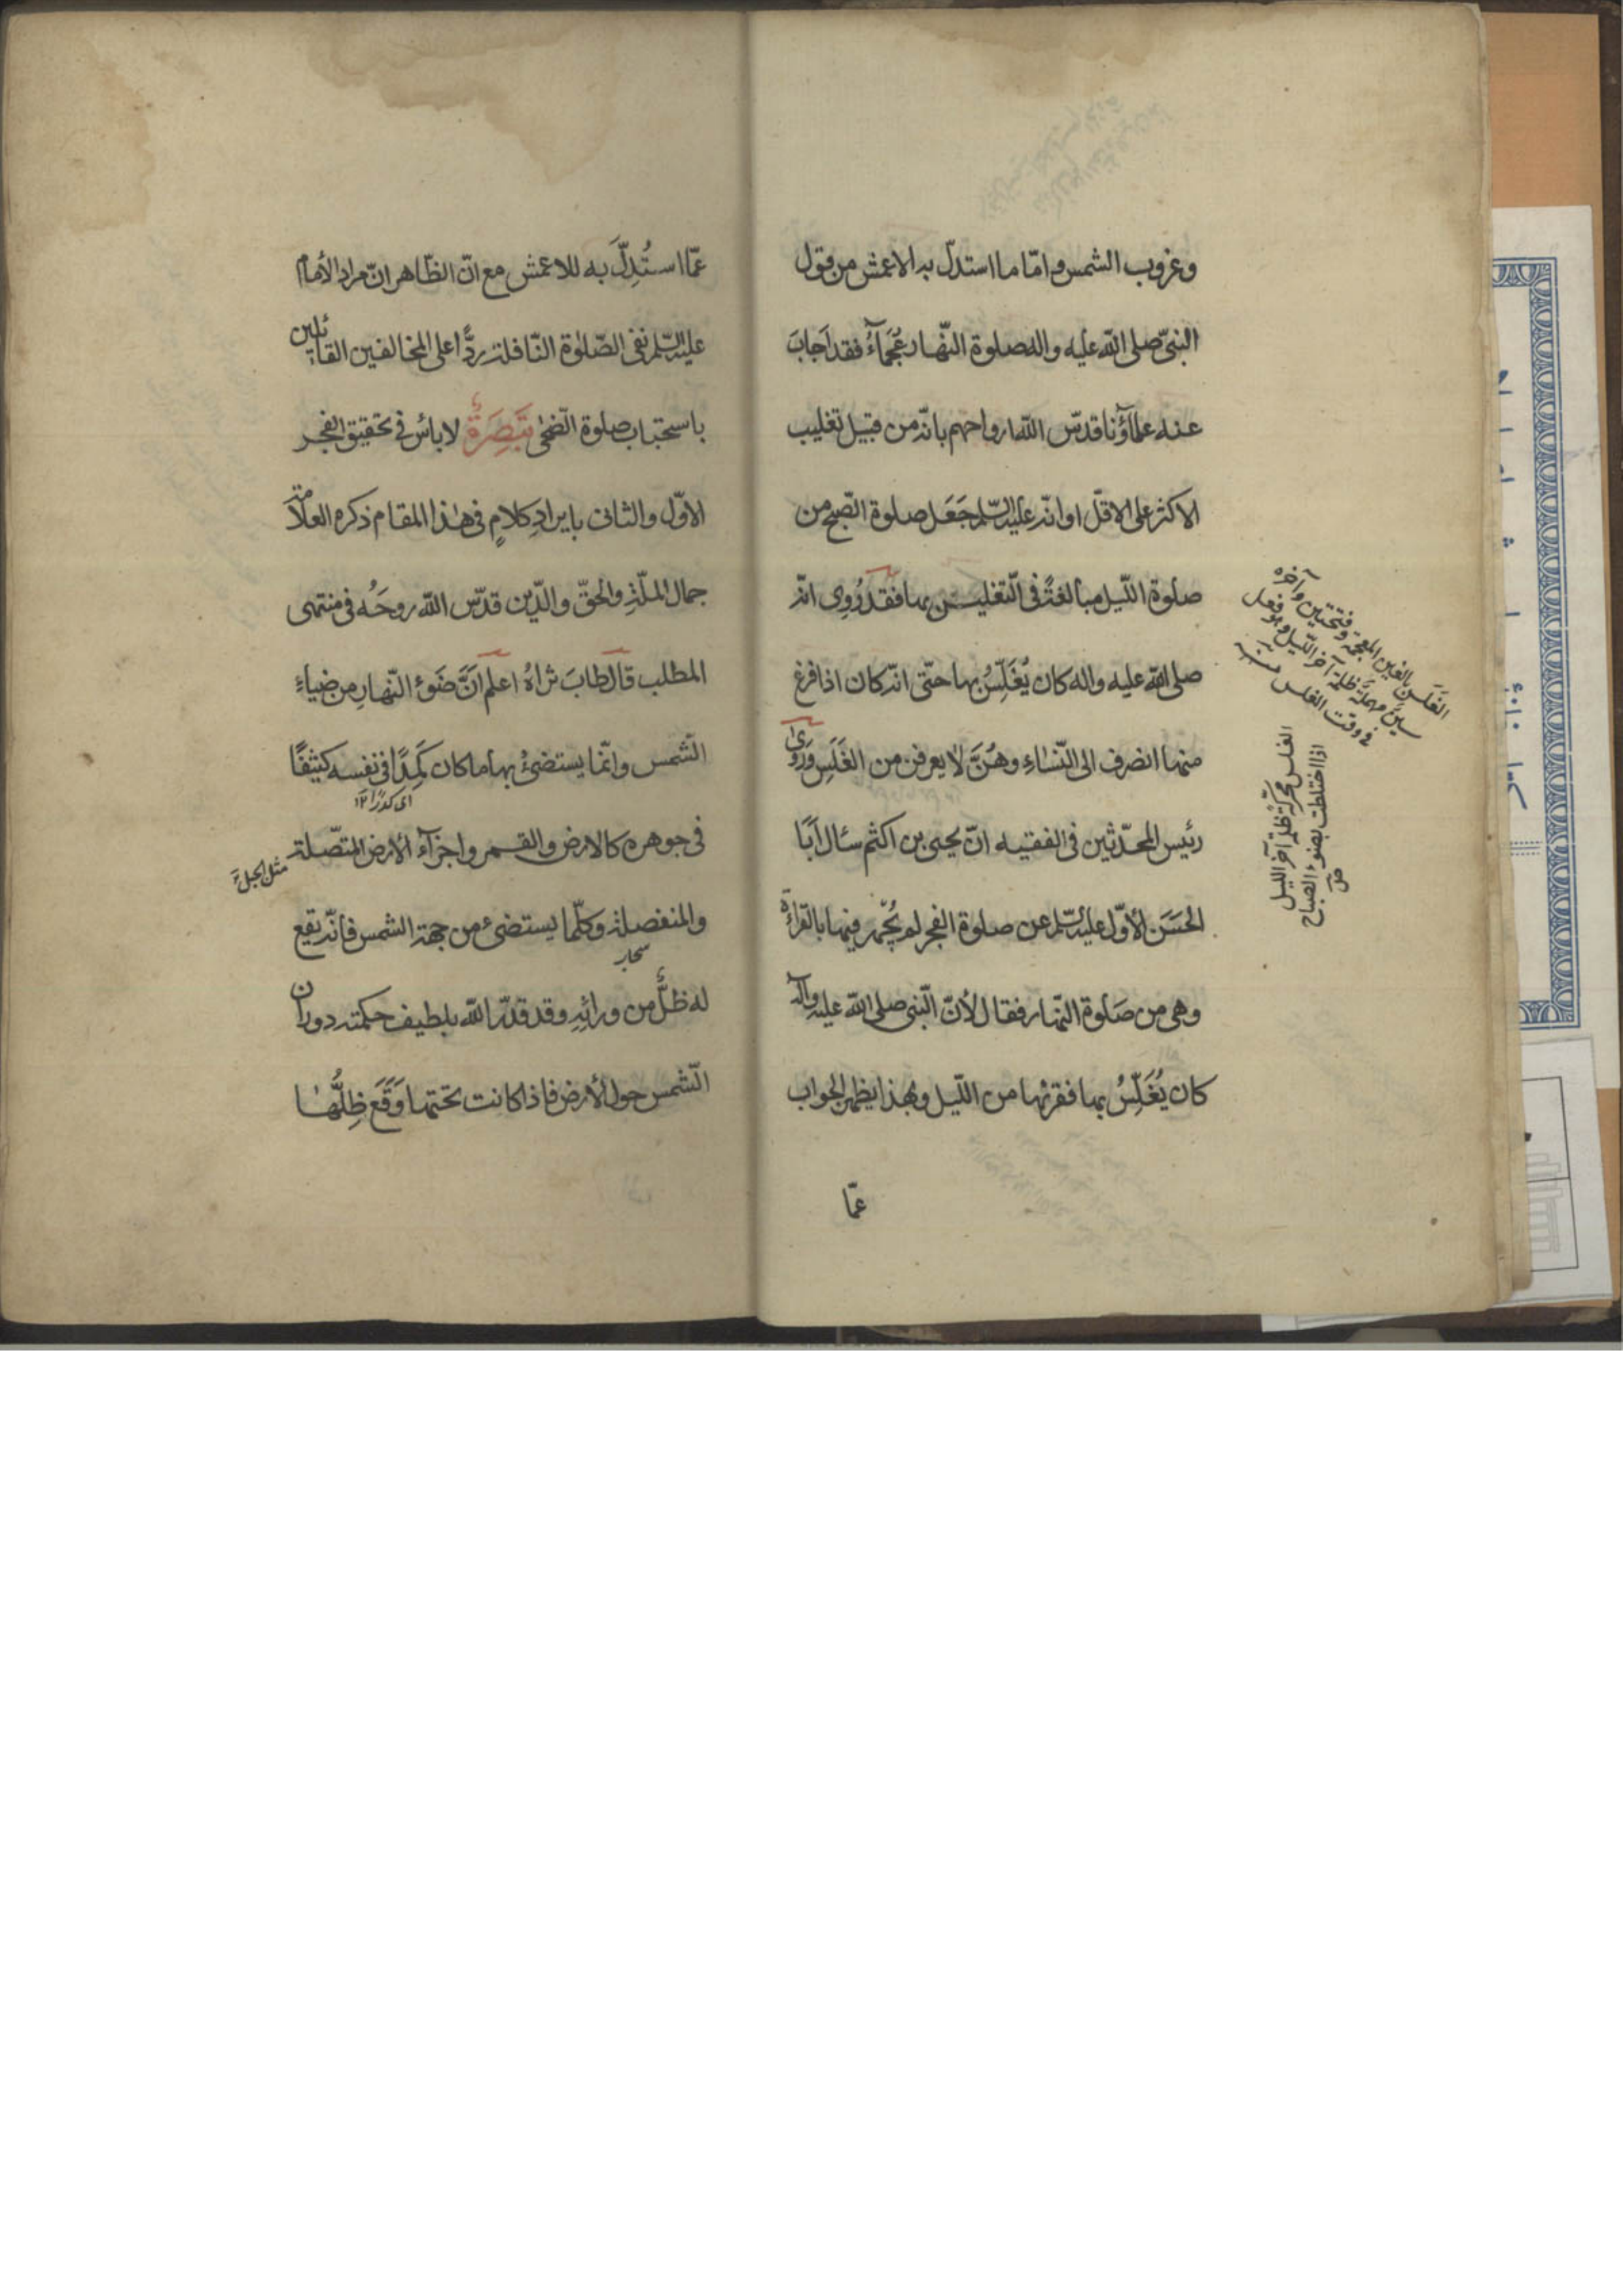 وغروب الشمس وامّا ما استدلّ به الاعمش من قول
النبىّ صلى اللّه عليه واله صلوة النّهار عَجْمآءُ فقد اَجابَ
عنه علمآؤنا قدّس اللّه ارواحهم بانّه من قبيل تغليب
الاكثر على الاقلّ او انّه عليه السّلم جَعَل صلوة الصّبح من
صلوة اللّيل مبالغةً فى التّغليس بها فقد رُوِى انّه
صلى اللّه عليه واله كان يُغَلِّسُ بها حتّى انّه كان اذا فرغ
منها انصرف الى النّسَاءِ وهُنَّ لا يعرفن من الغَلَسِ وَرَوىٰ
رئيس المحدّثين فى الفقيه انّ يحيى بن اكثم سئال اَبَا
الحَسَن الأوّل عليه السّلم عن صلوة الفجر لم يُجْهر فيها بالقراءَة
وهى من صَلوة النّهار فقال لأنّ النّبى صلى اللّه عليه وآله
كان يُغَلِّسُ بها فقربها من اللّيل وبهذا يظهر الجواب
عمّا
الغَلَس بالغين المعجمة وفتحتين وآخره
سين مهملة ظلمة آخر اللّيل وهو فعل
فى وقت الغلس منه
الغلس محرّكة ظلمة آخر الليل
اذا اختلطت بضوء الصباح
عمّا استُدِلَّ به للاعمش مع انّ الظّاهر انّ مراد الأمام
عليه السّلم نفى الصّلوة النّافلة ردًّا على المخالفين القائلين
باستحباب صلوة الضّحٰى تَبْصِرَةٌ لا باس فى تحقيق الفجر
الاوّل والثانى بايرادِ كلامٍ فى هٰذا المقام ذكره العلاّمة
جمال الملّةِ والحقّ والدّين قدّس اللّه روحَه فى منتهى
المطلب قال طابَ ثراهُ اعلم اَنَّ ضَوءَ النّهارِ من ضياءِ
الشّمس وانّما يستضئُ بها ما كان كَمِدًا فى نفسه كثيفًا
اى كدرًا ١٢
فى جوهره كالارض والقمر واجزآء الأرض المتّصلة
مثل الجبل
والمنفصلة وكلّما يستضئ من جهة الشمس فانّه يقع
سحاب
له ظلٌّ من ورائِهِ وقد قدّر اللّه بلطيف حكمته دوران
الشّمس حول الأرض فاذا كانت تحتها وَقَعَ ظِلُّها